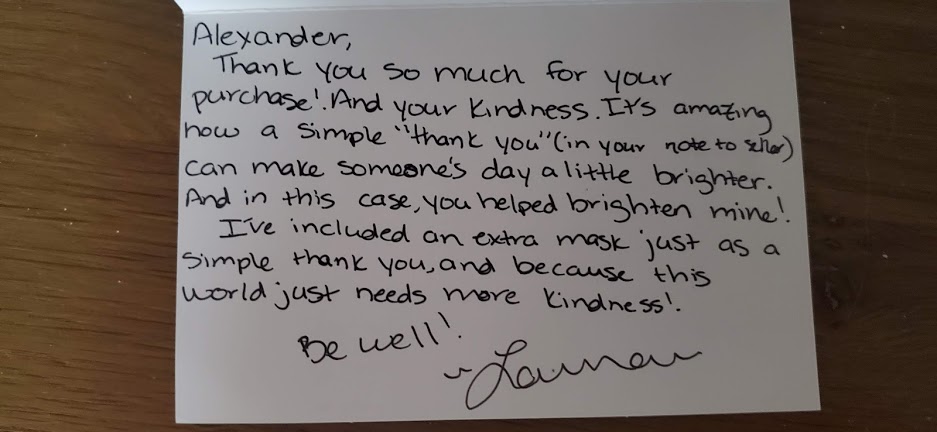 Alexander,
Thank you so much for your
purchase! And your kindness. It's amazing
how a simple "thank you" (in your note to seller)
can make someone's day a little brighter.
And in this case, you helped brighten mine!
I've included an extra mask just as a
simple thank you, and because this
world just needs more kindness!
Be well!